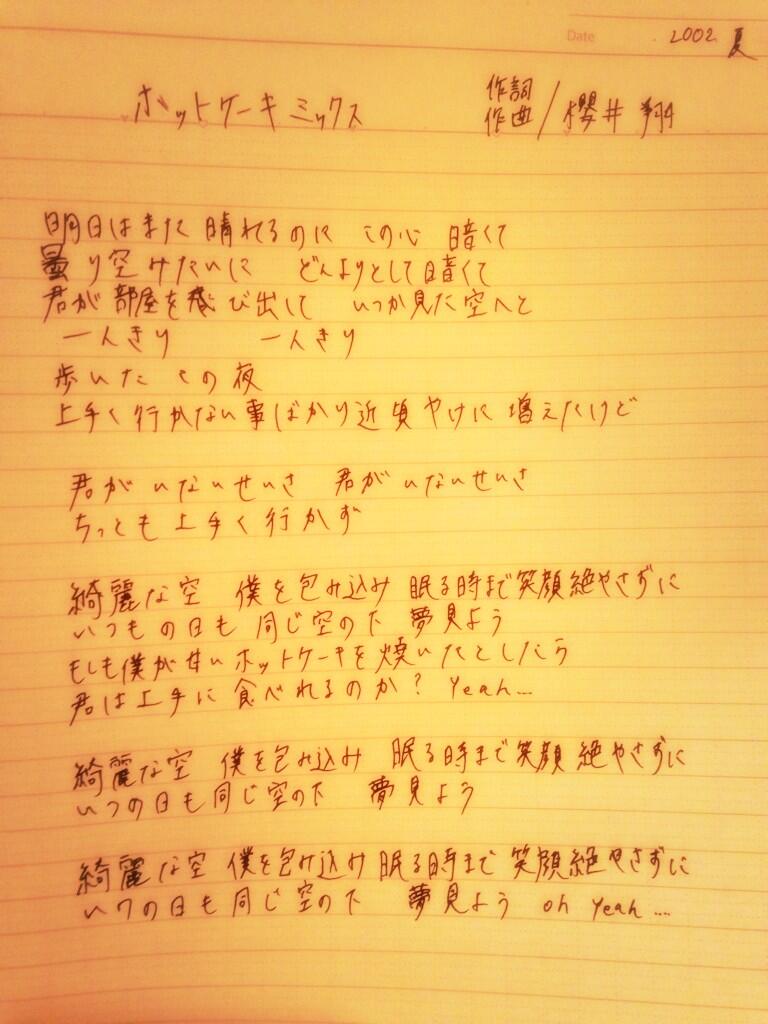 Date 2002 夏
ホットケーキミックス
作詞
作曲 / 櫻井 翔
明日はまた 晴れるのに この心 暗くて
曇り空みたいに どんよりとして暗くて
君が部屋を飛び出して いつか見た空へと
一人きり 一人きり
歩いた この夜
上手く行かない事ばかり近頃やけに増えたけど
君がいないせいさ 君がいないせいさ
ちっとも上手く行かず
綺麗な空 僕を包み込み 眠る時まで笑顔絶やさずに
いつもの日も 同じ空の下 夢見よう
もしも僕が甘いホットケーキを焼いたとしたら
君は上手に食べれるのか? Yeah...
綺麗な空 僕を包み込み 眠る時まで笑顔 絶やさずに
いつの日も同じ空の下 夢見よう
綺麗な空 僕を包み込み 眠る時まで 笑顔絶やさずに
いつの日も同じ空の下 夢見よう oh Yeah....